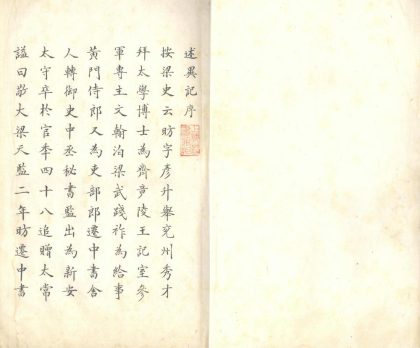 述異記序
按梁史云昉字彥升舉兖州秀才
拜太學博士為齊竟陵王記室參
軍專主文翰洎梁武踐祚為給事
黄門侍郎又為吏部郎遷中書舍
人轉御史中丞秘書監出為新安
太守卒於官年四十八追贈太常
諡曰敬大梁天監二年昉遷中書